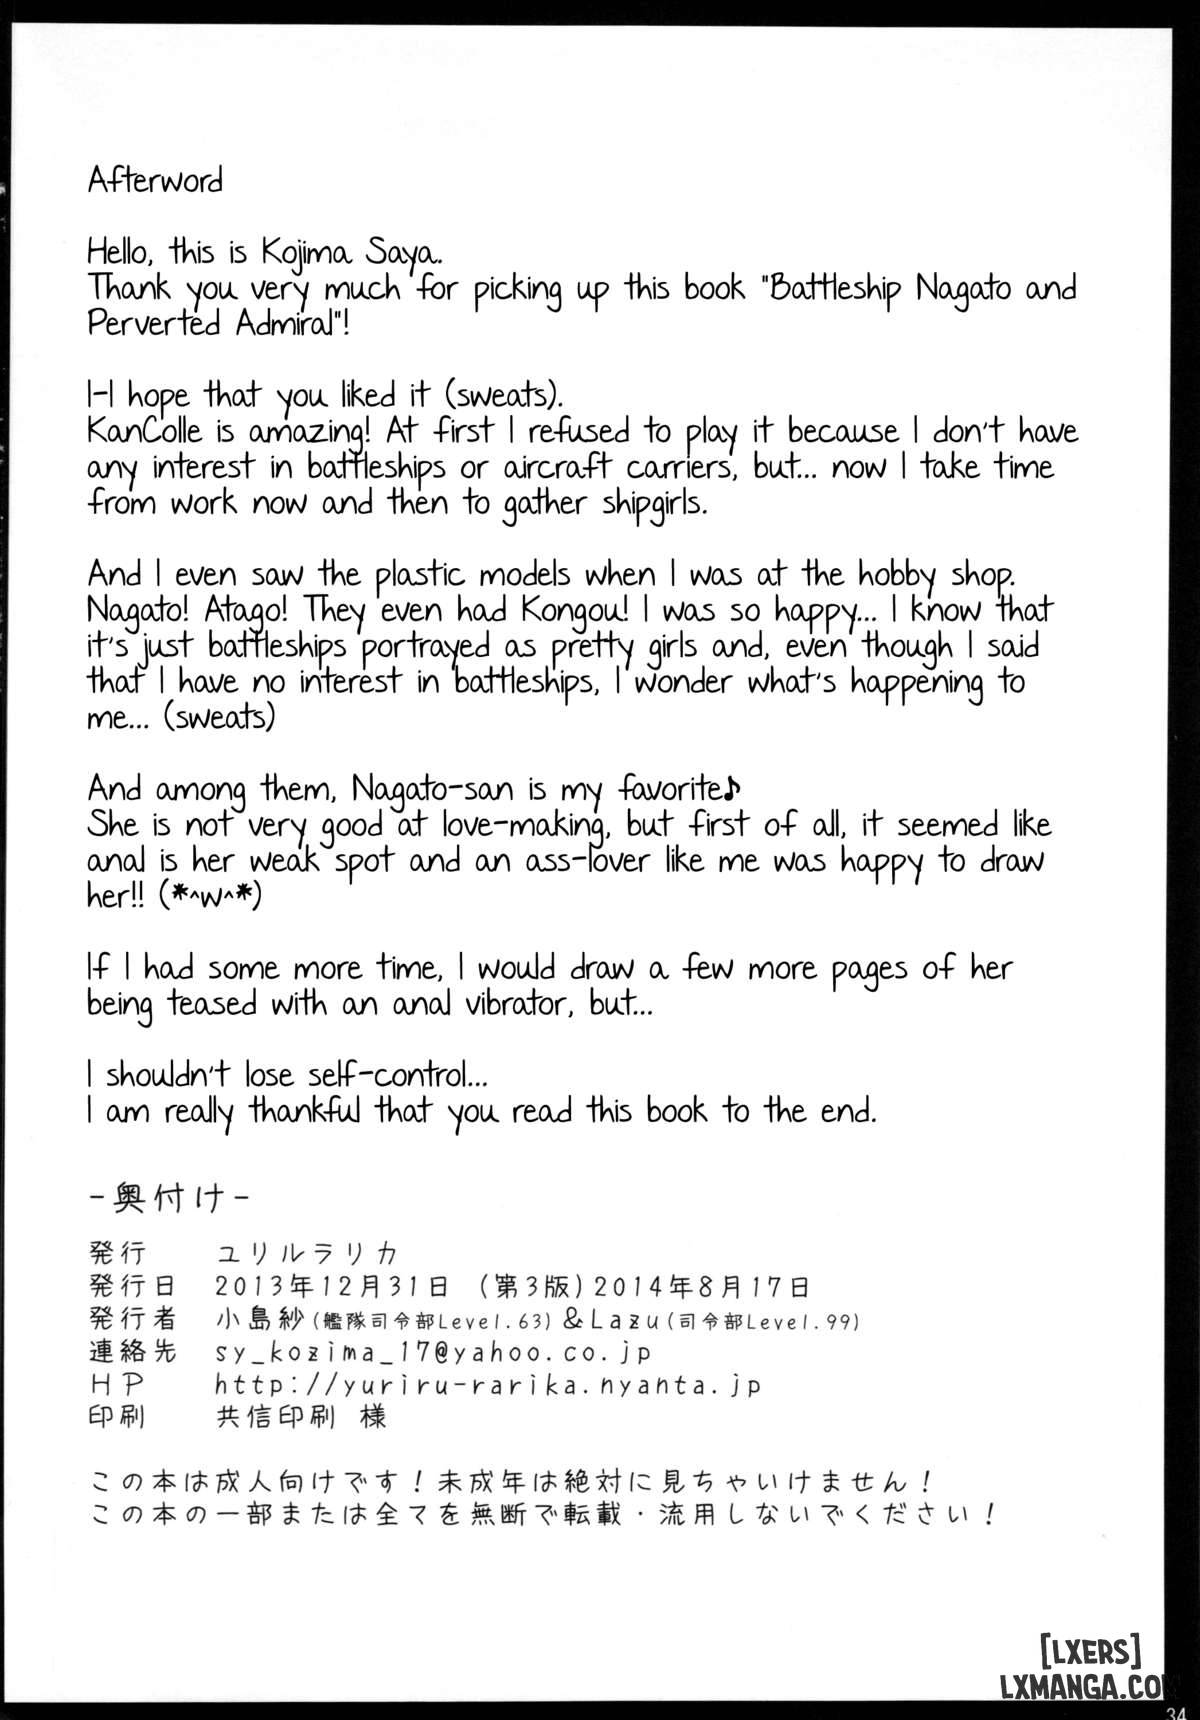 Afterword
Hello, this is Kojima Saya.
Thank you very much for picking up this book "Battleship Nagato and
Perverted Admiral"!
I-I hope that you liked it (sweats).
KanColle is amazing! At first I refused to play it because I don't have
any interest in battleships or aircraft carriers, but... now I take time
from work now and then to gather shipgirls.
And I even saw the plastic models when I was at the hobby shop.
Nagato! Atago! They even had Kongou! I was so happy... I know that
it's just battleships portrayed as pretty girls and, even though I said
that I have no interest in battleships, I wonder what's happening to
me... (sweats)
And among them, Nagato-san is my favorite♪
She is not very good at love-making, but first of all, it seemed like
anal is her weak spot and an ass-lover like me was happy to draw
her!! (*^w^*)
If I had some more time, I would draw a few more pages of her
being teased with an anal vibrator, but...
I shouldn't lose self-control...
I am really thankful that you read this book to the end.
-奥付け-
発行 ユリルラリカ
発行日 2013年12月31日 (第3版)2014年8月17日
発行者 小島紗(艦隊司令部Level.63)&Lazu(司令部Level.99)
連絡先 sy_kozima_17@yahoo.co.jp
HP http://yuriru-rarika.nyanta.jp
印刷 共信印刷 様
この本は成人向けです!未成年は絶対に見ちゃいけません!
この本の一部または全てを無断で転載・流用しないでください!
[LXERS]
LXMANGA.COM
34